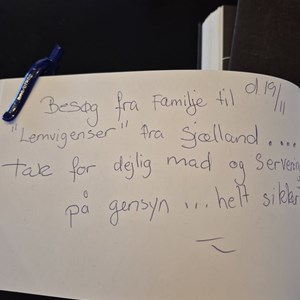 d 19/11
Besøg fra Familje til
"Lemvigenser" fra Sjælland....
tak for dejlig mad og
på gensyn ... helt